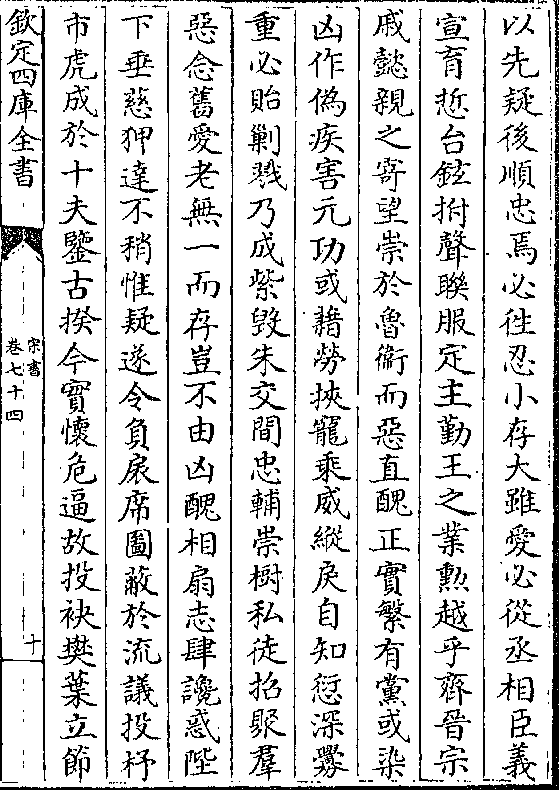 以先疑後順忠焉必徃忍小存大雖愛必從丞相臣義
宣育悊台鉉拊聲聯服定主勤王之業勲越乎齊晉宗
戚懿親之寄望崇於魯衛而惡直醜正實繁有黨或染
凶作偽疾害元功或藉勞挾寵乘威縱戾自知愆深釁
重必貽剿戮乃成紫毀朱交間忠輔崇樹私徒招聚羣
惡念舊愛老無一而存豈不由凶醜相扇志肆讒惑陛
下垂慈狎達不稍惟疑遂令負扆席圖蔽於流議投杼
市虎成於十夫鑒古揆今實懷危逼故投袂樊葉立節
欽定四庫全書
宋書
卷七十四
十